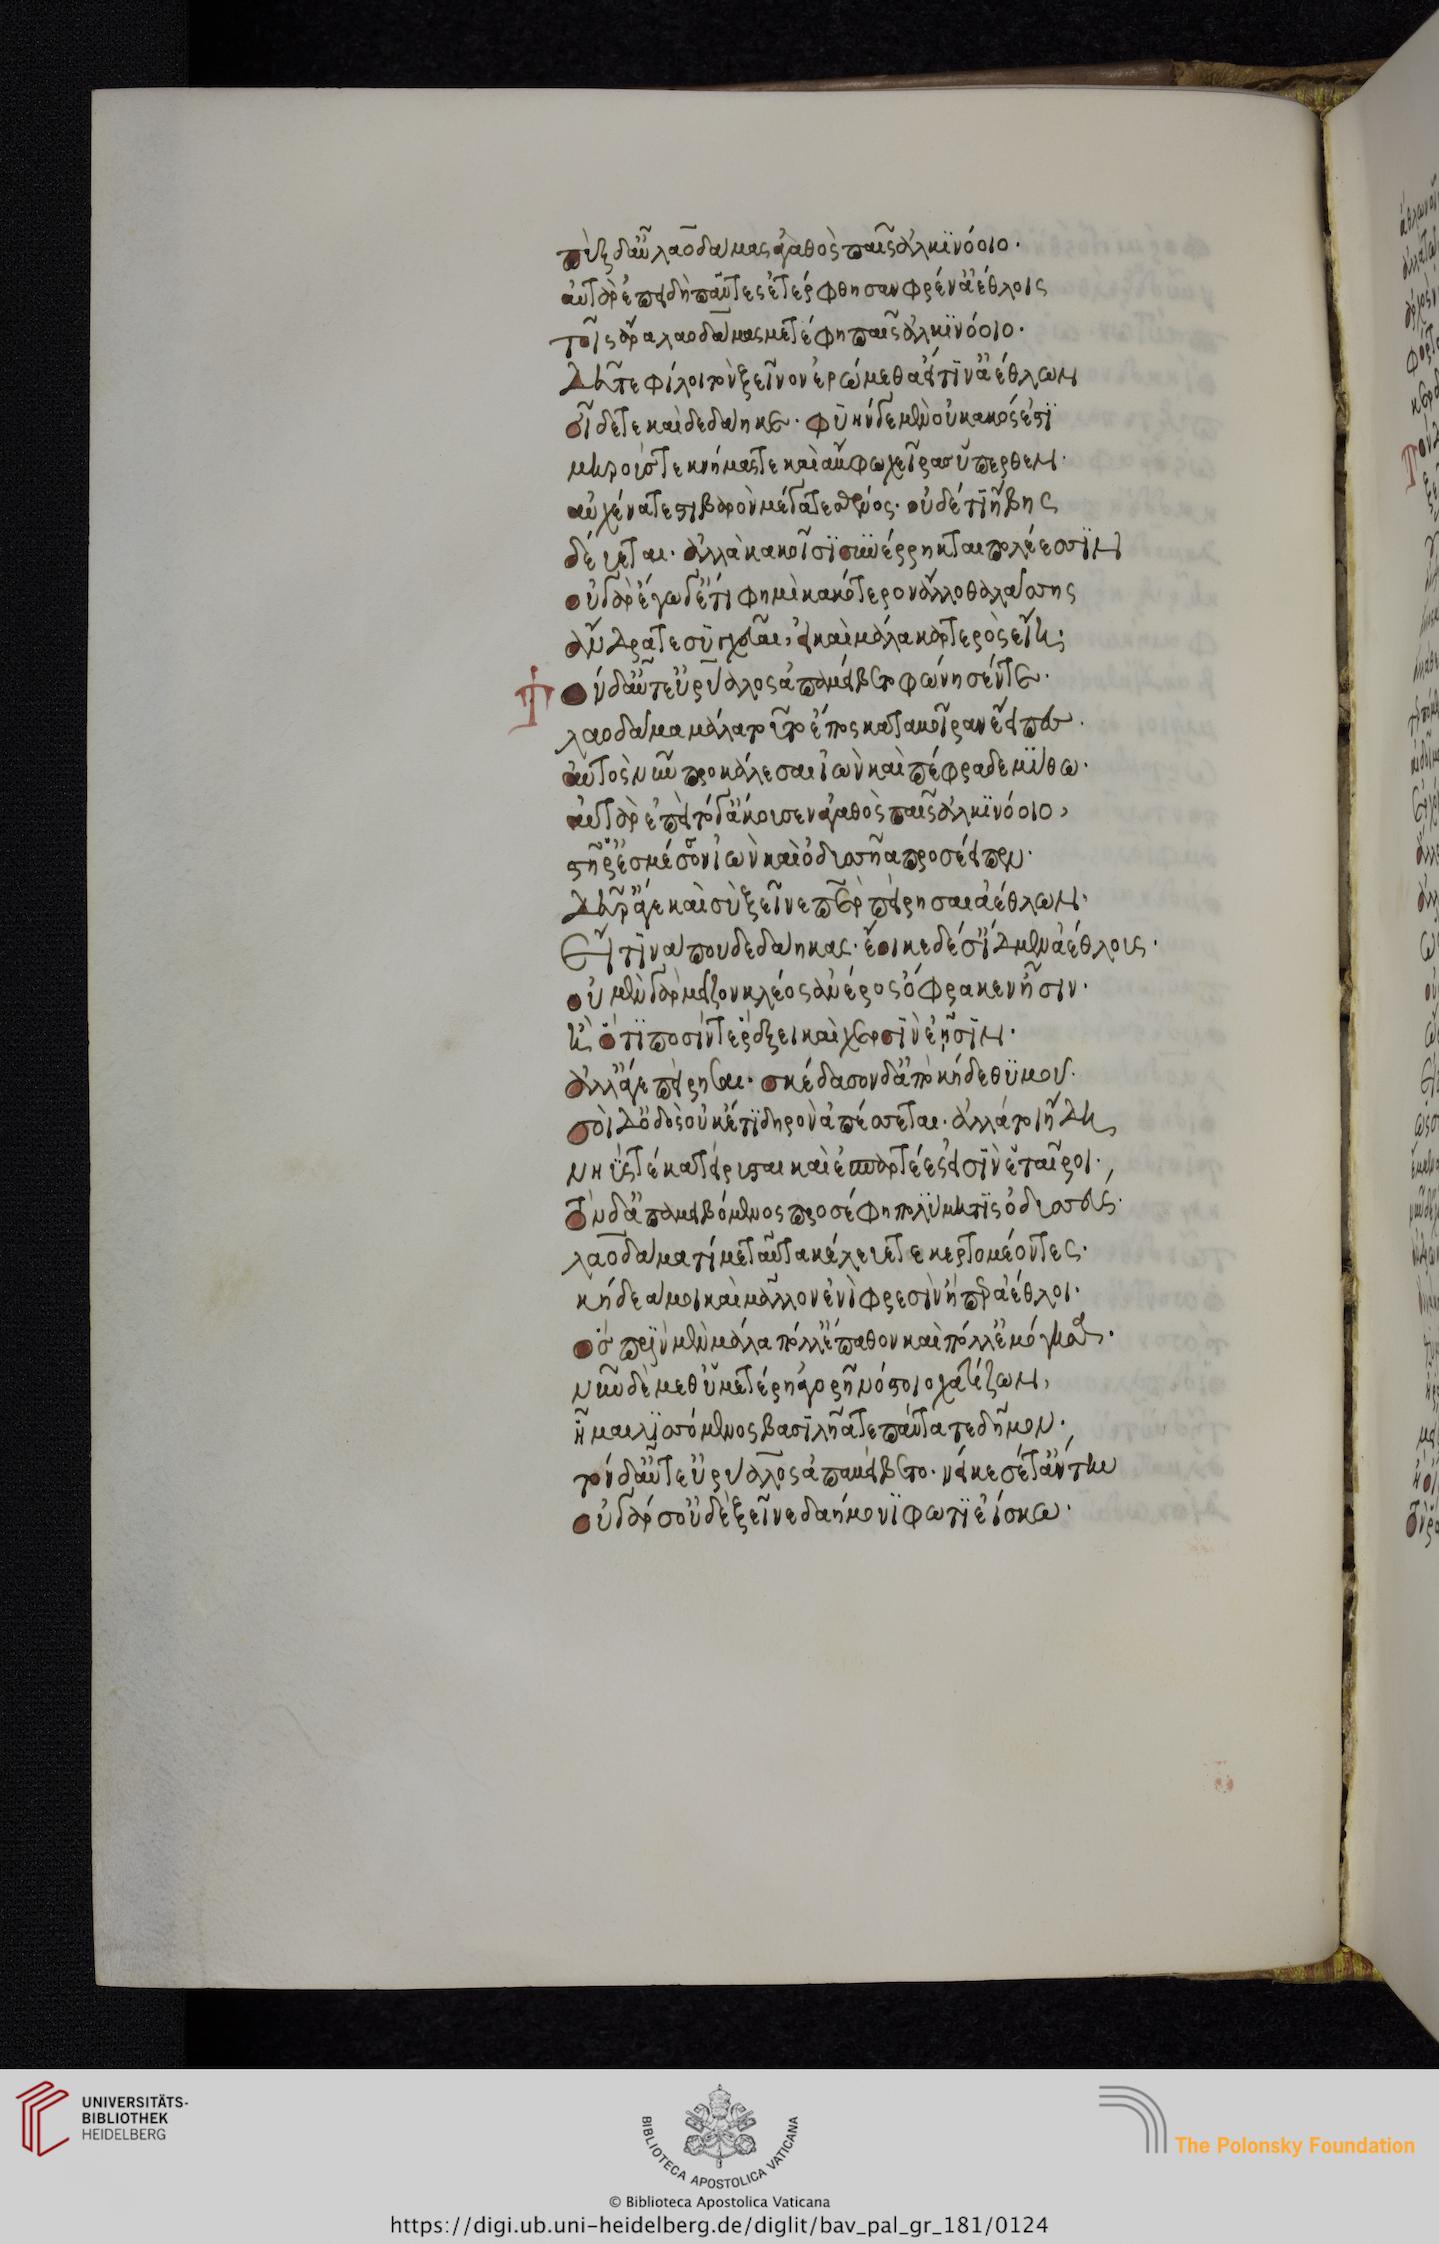 πὺξ δ' αὖ λαοδάμας ἀγαθὸς παῖς ἀλκϊνόοιο·
αὐτὰρ ἐπειδὴ πάντες ἐτέρφθησαν φρέν' ἀέθλοις
τοῖς ἄρα λαοδάμας μετέφη παῖς ἀλκϊνόοιο·
δεῦτε φίλοι τὸν ξεῖνον ἐρώμεθα εἴ τϊν' ἄεθλων
οἶδέ τε καὶ δεδάηκε· φϋήν δε μὲν οὐ κακός ἐστϊ
μηρούς τε κνήμας τε καὶ ἄμφω χεῖρας ὕπερθεν·
αὐχένα τε στιβαρὸν μέγα τε σθένος· οὐδέ τϊ ἥβης
δεύεται· ἀλλὰ κακοῖσϊ συνέρρηκται πολέεσσϊν
οὐ γὰρ ἐγώ γέ τί φημι κακότερον ἄλλο θαλάσσης
ἄνδρα τε συγχεῦαι, εἰ καὶ μάλα καρτερὸς εἴη·
Τὸν δ' αὖτ' εὐρύαλος ἀπαμείβετο φώνησέν τε·
λαοδάμα μάλα τοῦτο ἔπος κατὰ κοῖραν ἔειπες·
αὐτὸς νῦν προκάλεσαι ἰὼν καὶ πέφραδε μύθω·
αὐτὰρ ἐπεὶ τό γ' ἄκουσεν ἀγαθὸς παῖς ἀλκϊνόοιο,
στῆ ῥ' ἐς μέσσον ἰὼν καὶ ὀδυσσῆα προσέειπεν·
δεῦρ' ἄγε καὶ σὺ ξεῖνε πάτερ πείρησαι ἀέθλων·
Εἴ τϊνά που δεδάηκας· ἔοικε δέ σ' ἴδμεν ἀέθλους·
οὐ μὲν γὰρ μεῖζον κλέος ἀνέρος ὄφρα κεν ᾖσιν·
ἢ ὅ τϊ ποσίν τε ῥέξει καὶ χερσϊν ἑῇσϊν·
ἀλλ' ἄγε πείρησαι· σκέδασον δ' ἀπὸ κήδε θϋμοῦ·
σοὶ δ' ὁδὸς οὐκέτϊ δηρὸν ἀπέσσεται· ἀλλά τοι ἤδη
νηῦς τε κατείρυσται καὶ ἐπαρτέες εἰσϊν ἑταῖροι·
Τὸν δ' ἀπαμειβόμενος προσέφη πολύμητϊς ὀδυσσεύς·
λαοδάμα τί με ταῦτα κελεύετε κερτομέοντες·
κήδεά μοι καὶ μᾶλλον ἐνὶ φρεσὶν ἤπερ ἄεθλοι·
ὃς πρϊν μὲν μάλα πόλλ' ἔπαθον καὶ πόλλ' ἐμόγησα·
νῦν δὲ μεθ' ὑμετέρη ἀγορῇ νόστοιο χατίζων,
ἧμαι λϊσσόμενος βασϊλῆά τε πάντα τε δῆμον·
τὸν δ' αὖτ' εὐρύαλος ἀπαμείβετο· νείκεσέ τ' ἄντην
οὐ γάρ σ' οὐδὲ ξεῖνε δαήμονϊ φωτϊ ἐίσκω·
UNIVERSITÄTS-
BIBLIOTHEK
HEIDELBERG
BIBLIOTECA APOSTOLICA VATICANA
The Polonsky Foundation
© Biblioteca Apostolica Vaticana
https://digi.ub.uni-heidelberg.de/diglit/bav_pal_gr_181/0124